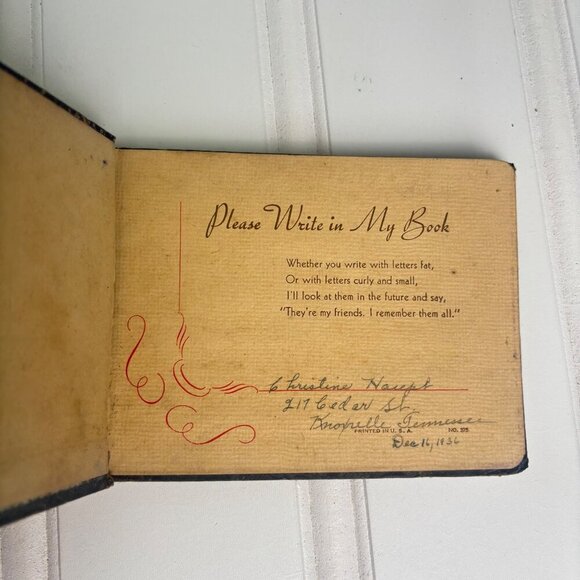 Please Write in My Book
Whether you write with letters fat,
Or with letters curly and small,
I'll look at them in the future and say,
"They're my friends. I remember them all."
Christine Haupt
217 Cedar St.
Knoxville Tennessee
PRINTED IN U. S. A. NO. 575
Dec 16, 1936